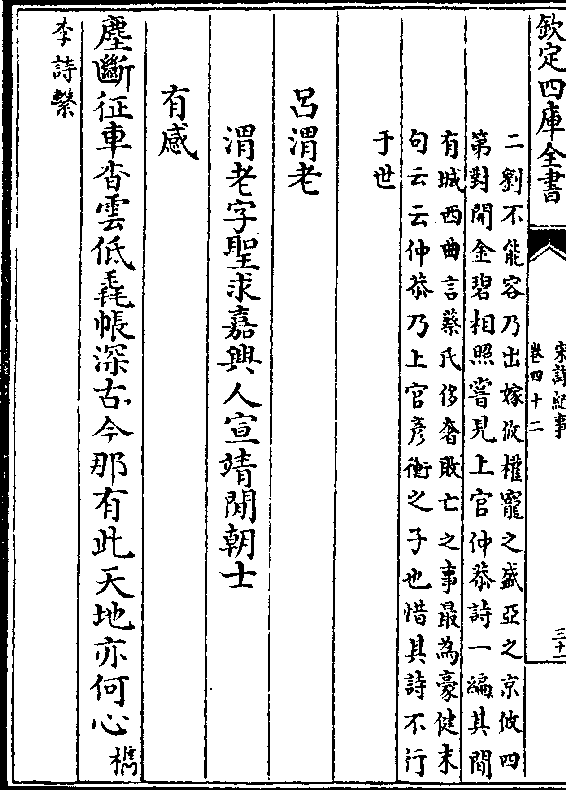 欽定四庫全書
宋詩紀事
卷四十二
三十一
二劉不能容乃出嫁攸權寵之盛亞之京攸四
第對開金碧相照嘗見上官仲恭詩一編其間
有城西曲言蔡氏侈奢敗亡之事最為豪健末
句云云仲恭乃上官彥衡之子也惜其詩不行
于世
呂渭老
渭老字聖求嘉興人宣靖間朝士
有感
塵斷征車杳雲低毳帳深古今那有此天地亦何心檇
李詩繫